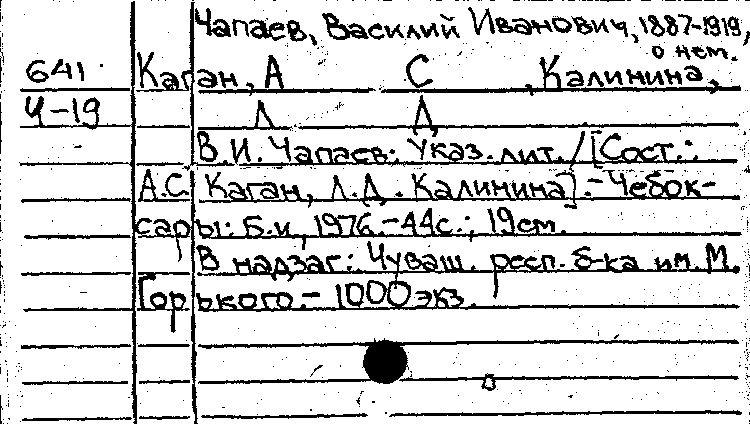 Чапаев, Василий Иванович, 1887-1919,
о нем.
641 Каган, А С , Калинина,
Ч-19 Л Д
В.И. Чапаев: Указ. лит. / [Сост.:
А.С. Каган, Л.Д. Калинина]. - Чебок-
сары: Б.и., 1976. - 44с.; 19см.
В надзаг.: Чуваш. респ. б-ка им. М.
Горького. - 1000 экз.